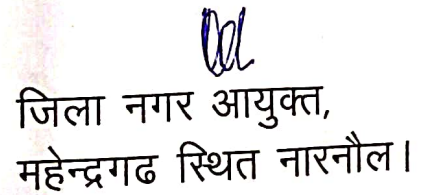 जिला नगर आयुक्त,
महेन्द्रगढ स्थित नारनौल।